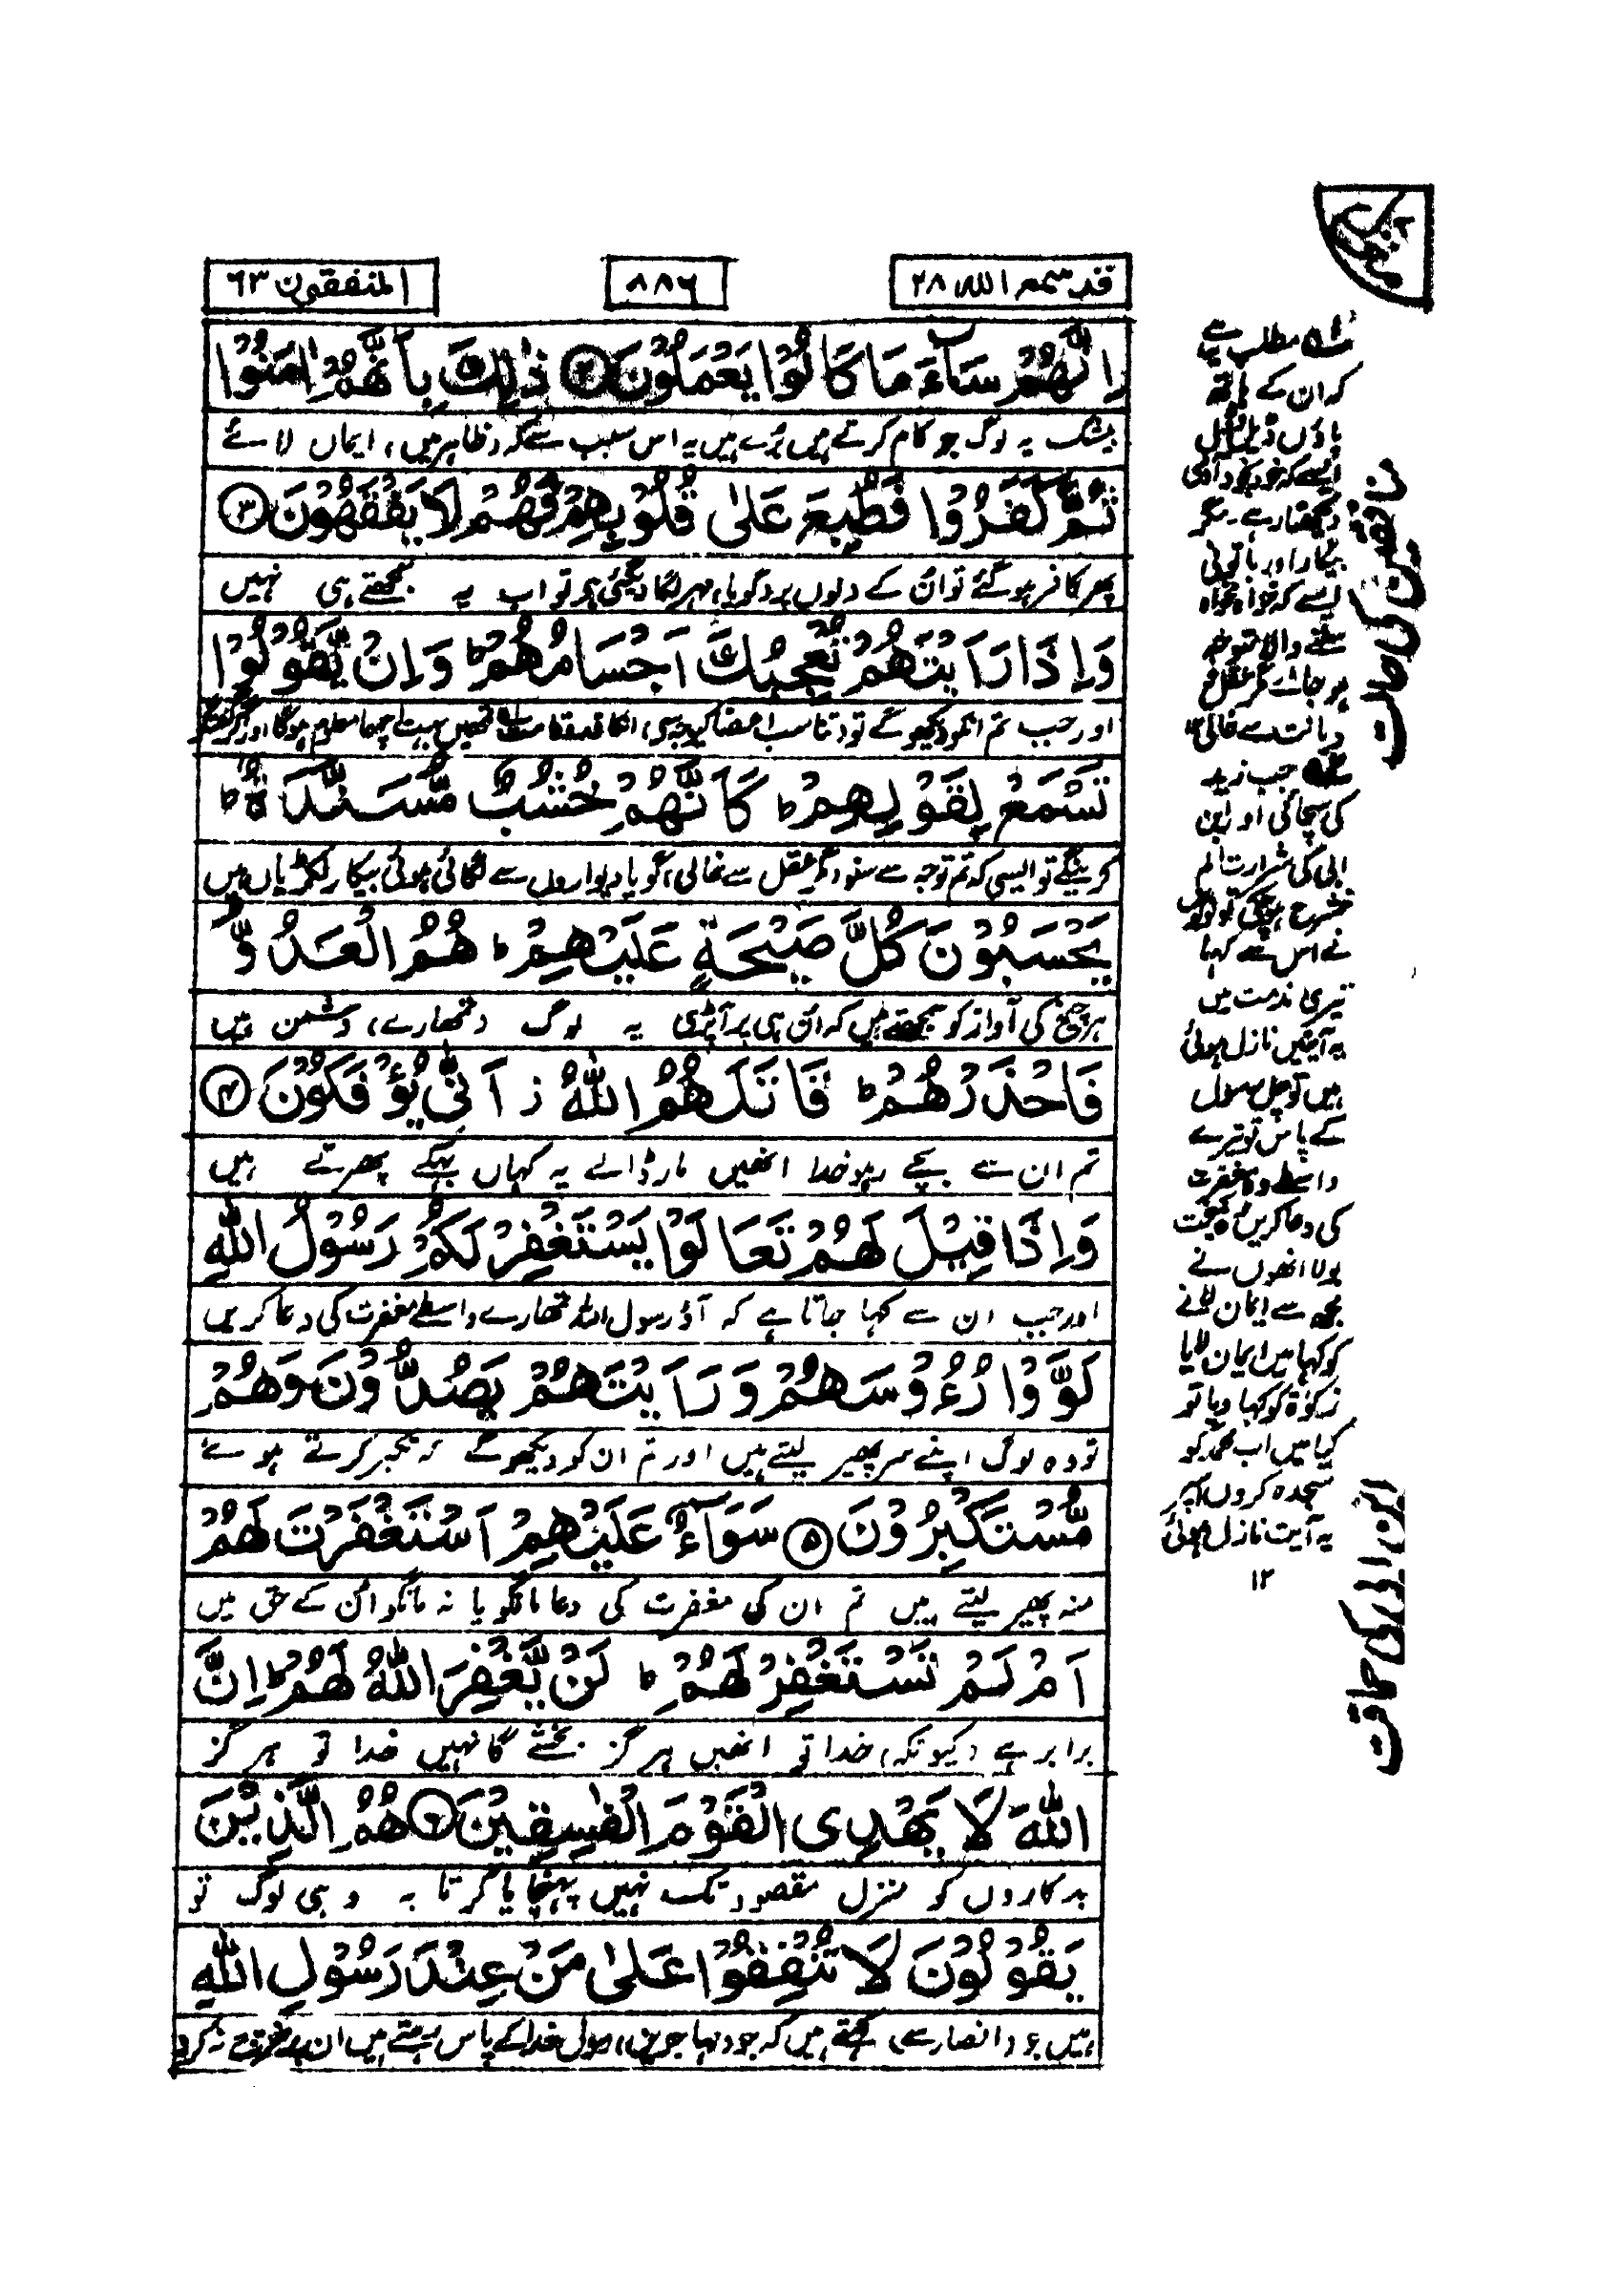 قد سمع الله ۲۸
۸۸۶
المنفقون ۶۳
اِنَّهُمْ سَآءَ مَا كَانُوْا يَعْمَلُوْنَ ۲ ذٰلِكَ بِاَنَّهُمْ اٰمَنُوْا
بیشک یہ لوگ جو کام کرتے ہیں بُرے ہیں یہ اس سبب سے کہ (ظاہر میں) ایمان لائے
ثُمَّ كَفَرُوْا فَطُبِعَ عَلٰى قُلُوْبِهِمْ فَهُمْ لَا يَفْقَهُوْنَ ۳
پھر کافر ہو گئے تو ان کے دلوں پر (گویا) مہر لگا دی گئی ہے تو اب یہ سمجھتے ہی نہیں
وَاِذَا رَاَيْتَهُمْ تُعْجِبُكَ اَجْسَامُهُمْ ؕ وَاِنْ يَّقُوْلُوْا
اور جب تم انکو دیکھو گے تو تناسب اعضا کیوجہ سے انکا قد و قامت تمھیں بہت اچھا معلوم ہوگا اور گفتگو
تَسْمَعْ لِقَوْلِهِمْ ؕ كَاَنَّهُمْ خُشُبٌ مُّسَنَّدَةٌ ؕ
کرینگے تو ایسی کہ تم توجہ سے سنو (مگر عقل سے خالی) گویا دیواروں سے لگائی ہوئی بیکار لکڑیاں ہیں
يَحْسَبُوْنَ كُلَّ صَيْحَةٍ عَلَيْهِمْ ؕ هُمُ الْعَدُوُّ
ہر چیخ کی آواز کو سمجھتے ہیں کہ ان ہی پر آپڑی یہ لوگ (تمھارے) دشمن ہیں
فَاحْذَرْهُمْ ؕ قَاتَلَهُمُ اللّٰهُ ز اَنّٰى يُؤْفَكُوْنَ ۴
تم ان سے بچے رہو خدا انھیں مار ڈالے یہ کہاں بہکے پھرتے ہیں
وَاِذَا قِيْلَ لَهُمْ تَعَالَوْا يَسْتَغْفِرْ لَكُمْ رَسُوْلُ اللّٰهِ
اور جب ان سے کہا جاتا ہے کہ آؤ رسول اللہ تمھارے واسطے مغفرت کی دعا کریں
لَوَّوْا رُءُوْسَهُمْ وَرَاَيْتَهُمْ يَصُدُّوْنَ وَهُمْ
تو وہ لوگ اپنے سر پھیر لیتے ہیں اور تم ان کو دیکھو گے کہ تکبر کرتے ہوئے
مُّسْتَكْبِرُوْنَ ۵ سَوَآءٌ عَلَيْهِمْ اَسْتَغْفَرْتَ لَهُمْ
منہ پھیر لیتے ہیں تم ان کی مغفرت کی دعا مانگو یا نہ مانگو ان کے حق میں
اَمْ لَمْ تَسْتَغْفِرْ لَهُمْ ؕ لَنْ يَّغْفِرَ اللّٰهُ لَهُمْ ؕ اِنَّ
برابر ہے (کیونکہ) خدا تو انھیں ہرگز بخشے گا نہیں خدا تو ہرگز
اللّٰهَ لَا يَهْدِى الْقَوْمَ الْفٰسِقِيْنَ ۶ هُمُ الَّذِيْنَ
بدکاروں کو منزل مقصود تک نہیں پہنچایا کرتا یہ وہی لوگ تو
يَقُوْلُوْنَ لَا تُنْفِقُوْا عَلٰى مَنْ عِنْدَ رَسُوْلِ اللّٰهِ
ہیں جو (انصار سے) کہتے ہیں کہ جو (مہاجرین) رسول خدا کے پاس رہتے ہیں ان پر خرچ نہ کرو
مطلب یہ ہے
کہ ان کے ہاتھ
پاؤں ڈیل ڈول
ایسے کہ خود بخود آدمی
دیکھتا رہے۔ مگر
بیکار اور باتونی
ایسے کہ خواہ مخواہ
سننے والا متوجہ
ہو جائے مگر عقل و
دیانت سے خالی ۱۲
جب زید
کی سچائی اور ابن
ابی کی شرارت الم
نشرح ہوچکی تو لوگوں
نے اس سے کہا
تیری مذمت میں
یہ آیتیں نازل ہوئی
ہیں تو چل رسول
کے پاس تو تیرے
واسطے وہ مغفرت
کی دعا کریں
بولا انھوں نے
مجھ سے ایمان لانے
کو کہا میں ایمان لایا
زکوٰۃ کو کہا دیا تو
کیا میں اب محمد کو
سجدہ کروں اسپر
یہ آیت نازل ہوئی
۱۲
منافقین کی حالت
ابن ابی کی حماقت